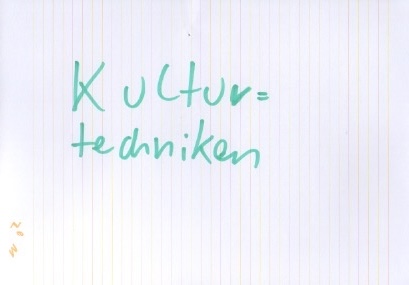 Kultur=
techniken